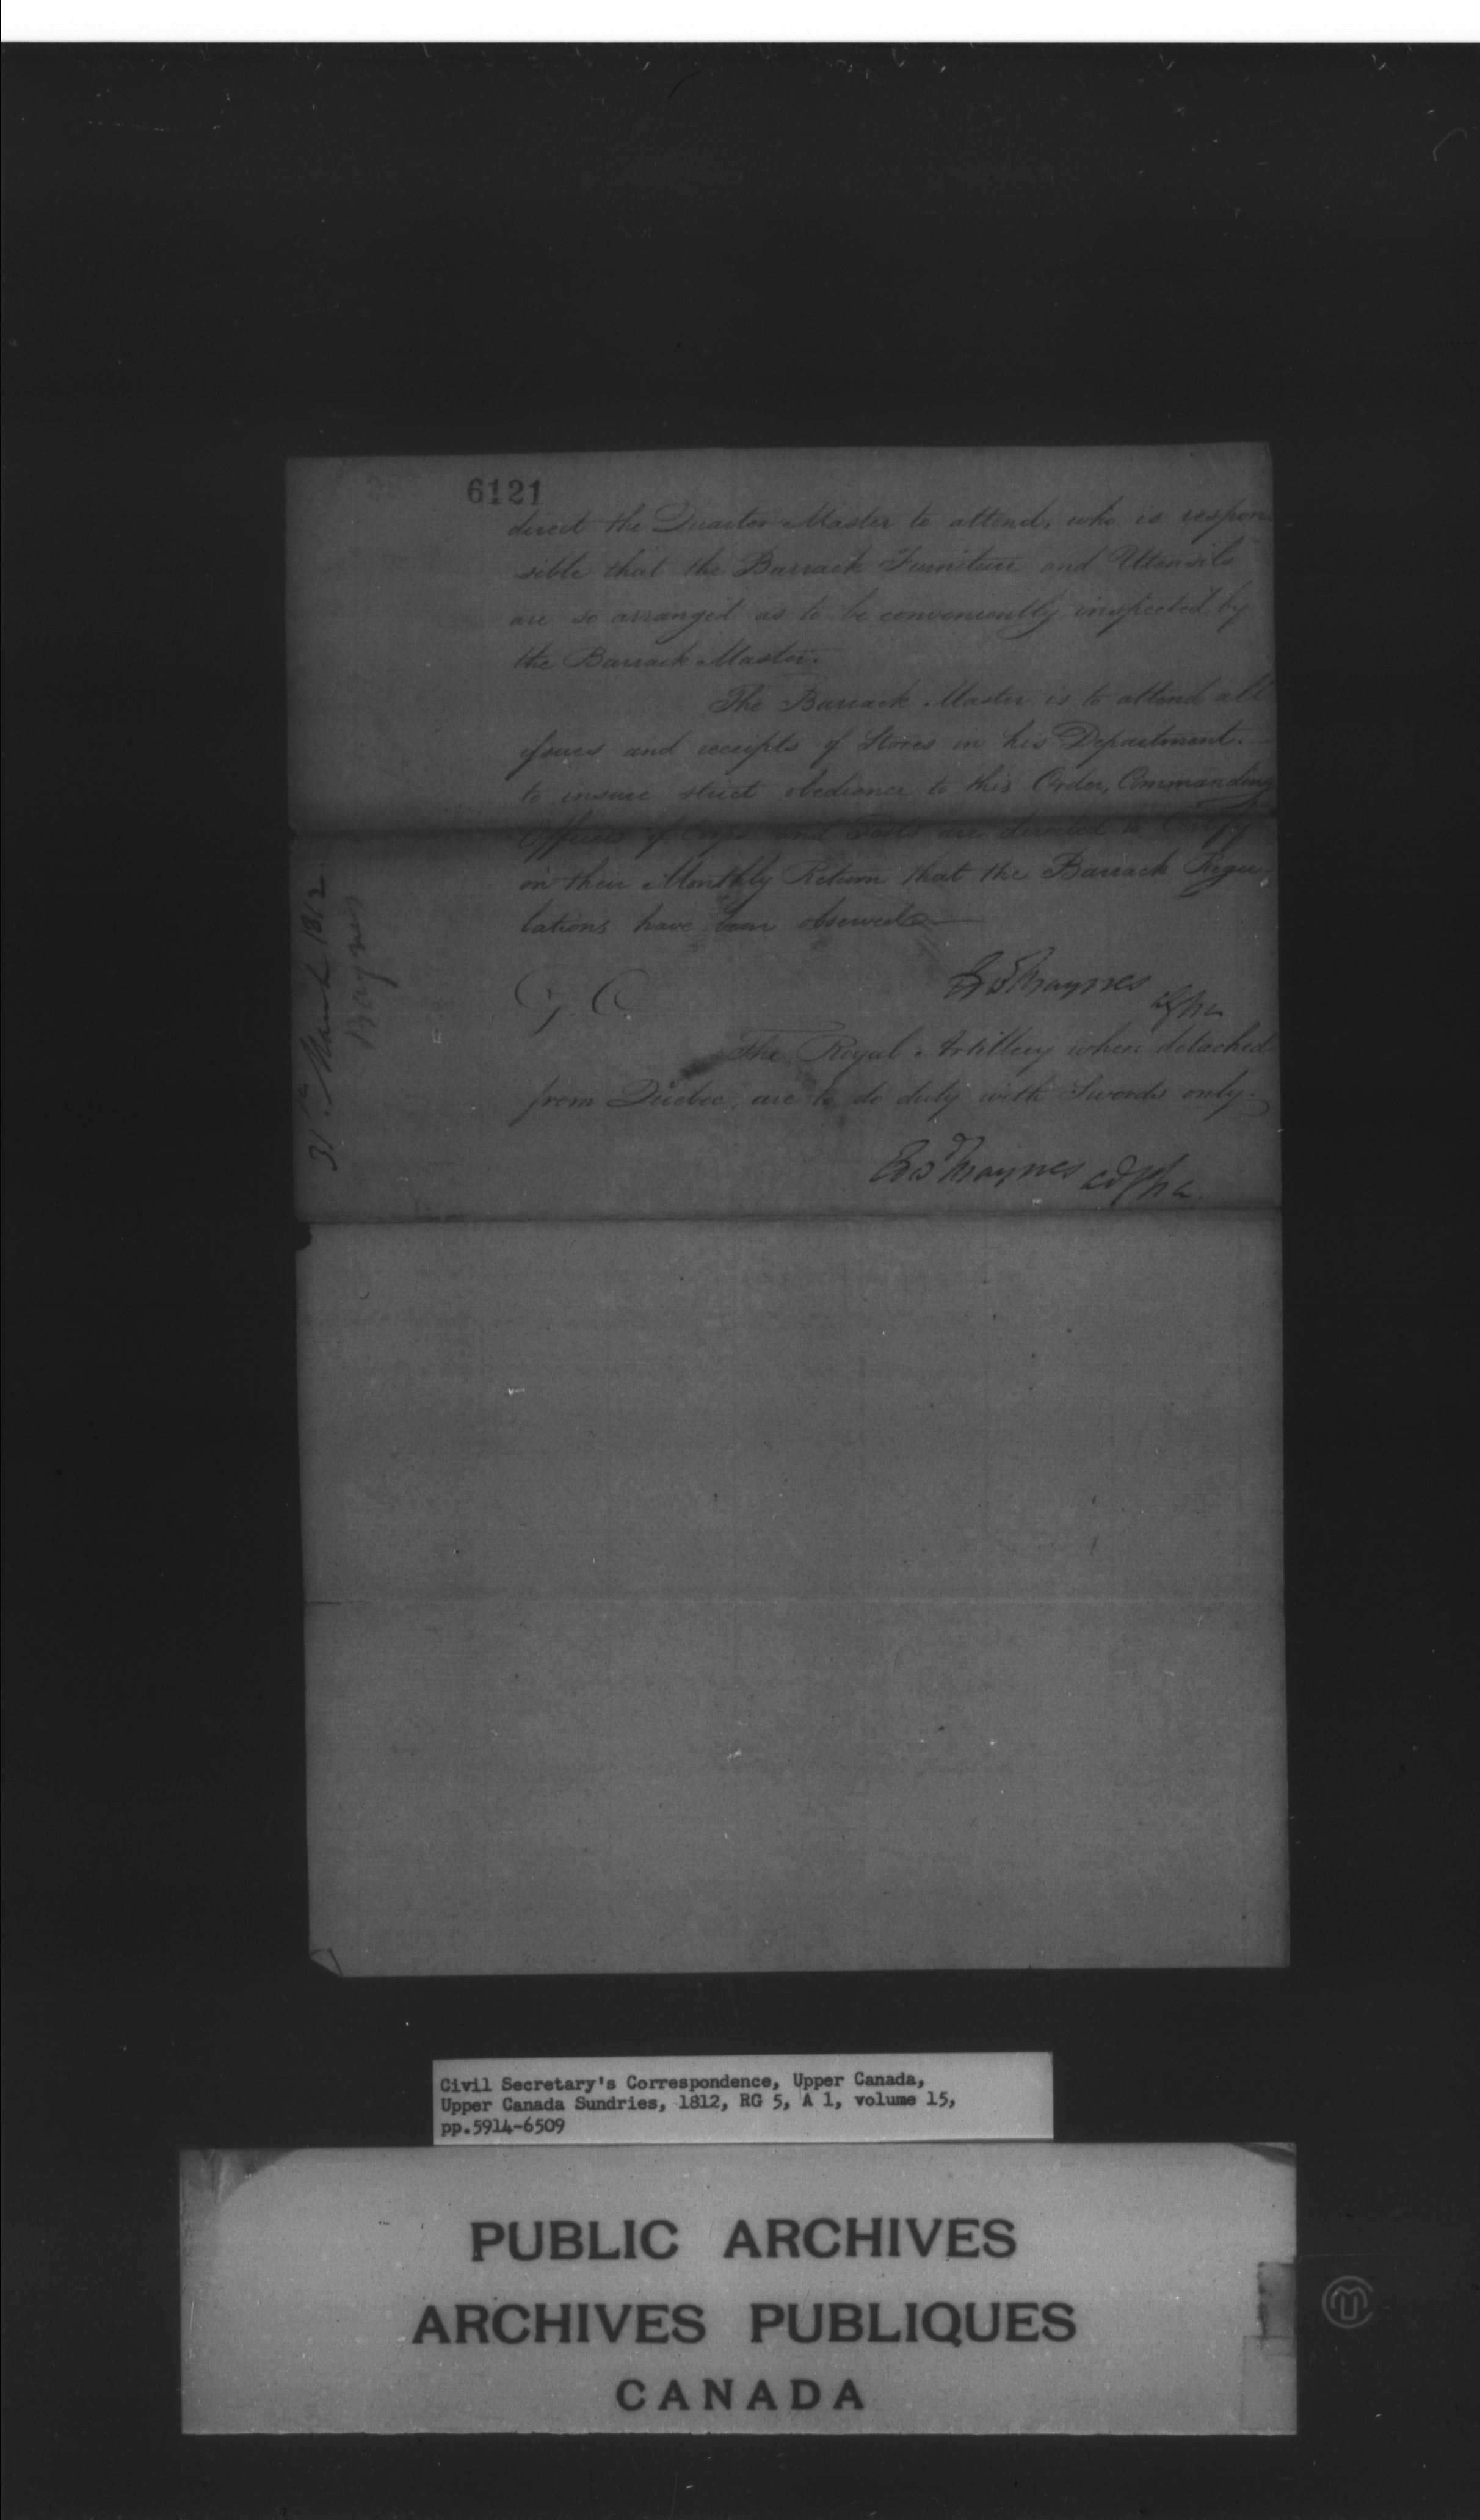 6121
direct the Quarter Master to attend, who is respon
sible that the Barrack Furniture and Utensils
are so arranged as to be conveniently inspected by
the Barrack Master.
The Barrack Master is to attend all
issues and receipts of Stores in his Department.
to insure strict obedience to this Order, Commanding
Officers of Corps and Posts are directed to Certify
on their Monthly Return that the Barrack Regu
lations have been observed
G. O.
Edwd Baynes
The Royal Artillery when detached
from Quebec, are to do duty with Swords only.
Edwd Baynes
31st March 1812
Baynes
Civil Secretary's Correspondence, Upper Canada,
Upper Canada Sundries, 1812, RG 5, A 1, volume 15,
pp.5914-6509
PUBLIC ARCHIVES
ARCHIVES PUBLIQUES
CANADA